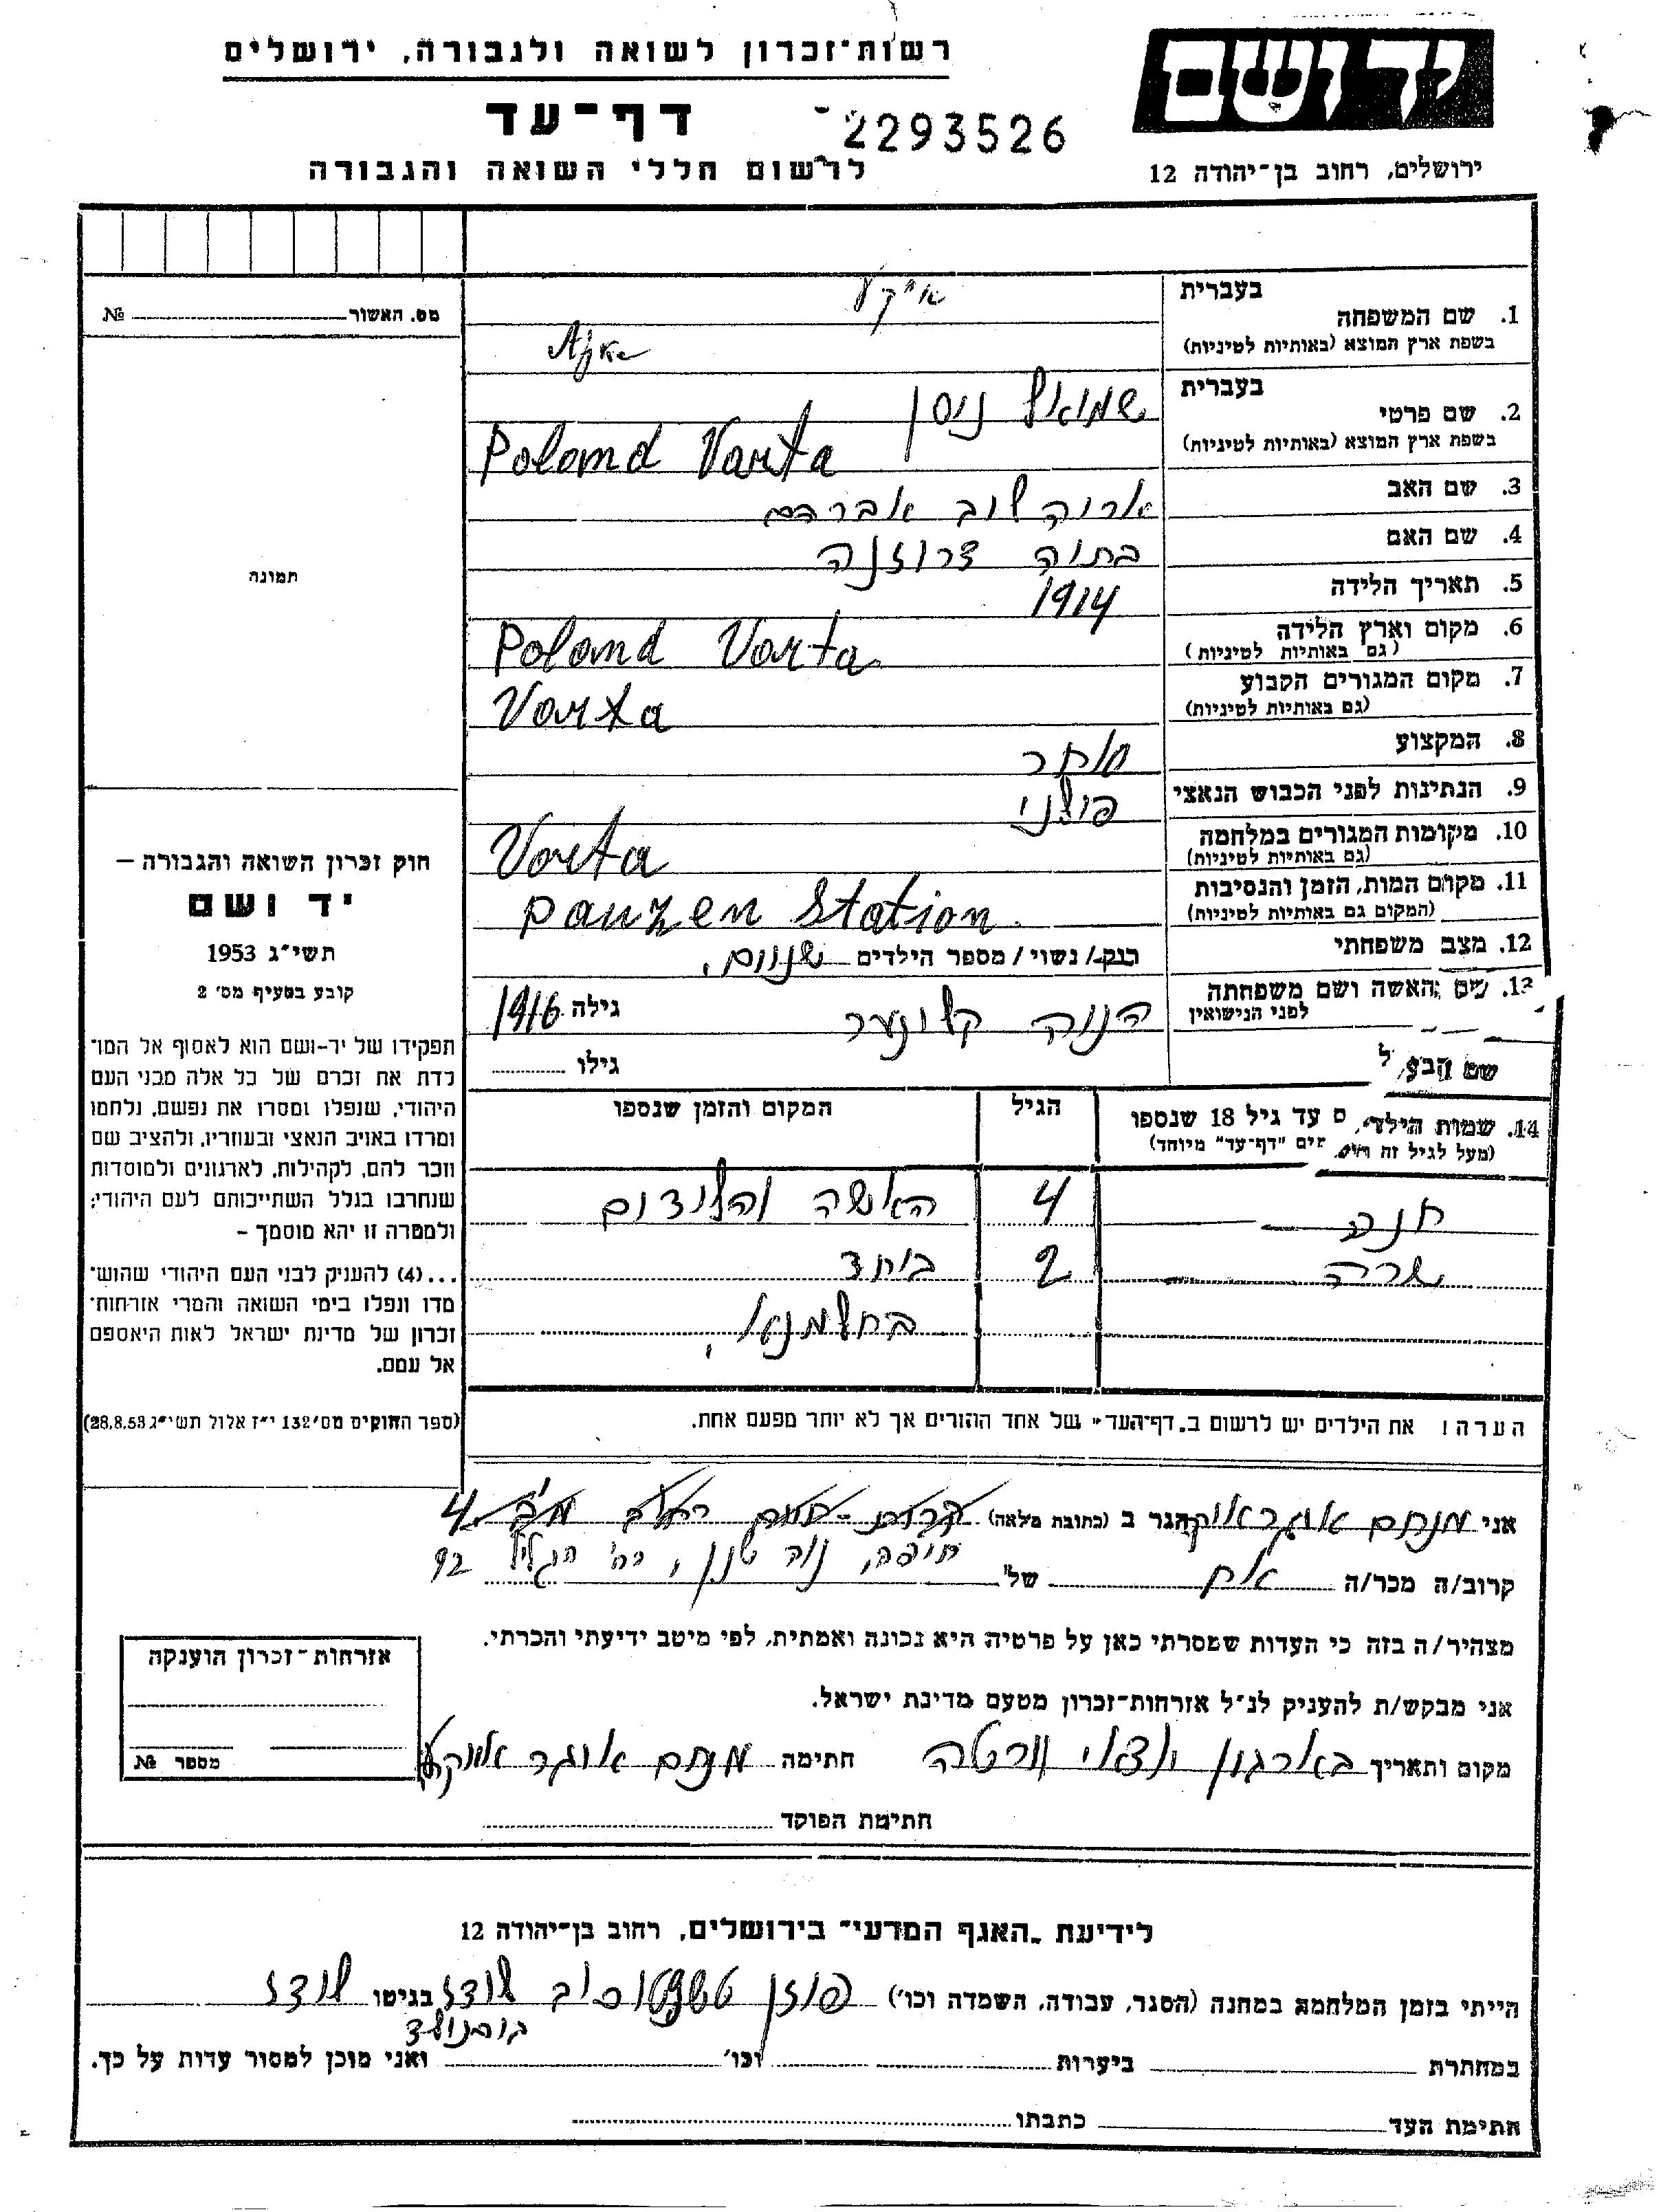 רשות־זכרון לשואה ולגבורה, ירושלים
יד ושם
דף־עד
2293526
לרשום חללי השואה והגבורה
ירושלים, רחוב בן־יהודה 12
מס. האשור № 
1. שם המשפחה בעברית
אייקע
בשפת ארץ המוצא (באותיות לטיניות)
2. שם פרטי בעברית
שמואל ניסן
בשפת ארץ המוצא (באותיות לטיניות)
Polomd Varta
3. שם האב
אריה לוב אברהם
4. שם האם
בתיה
5. תאריך הלידה 1914
6. מקום וארץ הלידה
(גם באותיות לטיניות)
Polomd Varta
7. מקום המגורים הקבוע
(גם באותיות לטיניות)
Varta
8. המקצוע סוחר
9. הנתינות לפני הכבוש הנאצי פולני
10. מקומות המגורים במלחמה
(גם באותיות לטיניות)
Varta
11. מקום המות, הזמן והנסיבות
(המקום גם באותיות לטיניות)
pauzen Station
12. מצב משפחתי רוק / נשוי / מספר הילדים שניים.
13. שם האשה ושם משפחתה
לפני הנישואין
הינדה גילה 1916
שם הבעל גילו
14. שמות הילדים עד גיל 18 שנספו הגיל המקום והזמן שנספו
(מעל לגיל זה "דף־עד" מיוחד)
חנה 4 האשה והילדים
שרה 2 ביחד
בחלמנא.
הערה! את הילדים יש לרשום ב„דף־העד" של אחד ההורים אך לא יותר מפעם אחת.
תמונה
חוק זכרון השואה והגבורה –
יד ושם
תשי"ג 1953
קובע בסעיף מס' 2
תפקידו של יד-ושם הוא לאסוף אל המו־
לדת את זכרם של כל אלה מבני העם
היהודי, שנפלו ומסרו את נפשם, נלחמו
ומרדו באויב הנאצי ובעוזריו, ולהציב שם
וזכר להם, לקהילות, לארגונים ולמוסדות
שנחרבו בגלל השתייכותם לעם היהודי;
ולמטרה זו יהא מוסמך –
...(4) להעניק לבני העם היהודי שהוש־
מדו ונפלו בימי השואה והמרי אזרחות־
זכרון של מדינת ישראל לאות היאספם
אל עמם.
(ספר החוקים מס' 132 י"ז אלול תשי"ג 28.8.53)
אני מנחם הגר ב (כתובת מלאה) קרית-חיים רחוב 4
חיפה, נוה שאנן, רח' הגליל 92
קרוב/ה מכר/ה אח של
מצהיר/ה בזה כי העדות שמסרתי כאן על פרטיה היא נכונה ואמתית, לפי מיטב ידיעתי והכרתי.
אני מבקש/ת להעניק לנ"ל אזרחות־זכרון מטעם מדינת ישראל.
מקום ותאריך בארגון יוצאי וורטה חתימה מנחם אוגר אייקע
חתימת הפוקד
אזרחות־זכרון הוענקה
מספר №
לידיעת „האגף המדעי" בירושלים, רחוב בן־יהודה 12
הייתי בזמן המלחמה במחנה (הסגר, עבודה, השמדה וכו') פוזן לודז בגיטו לודז
במחתרת ביערות וכו' ואני מוכן למסור עדות על כך.
חתימת העד כתבתו